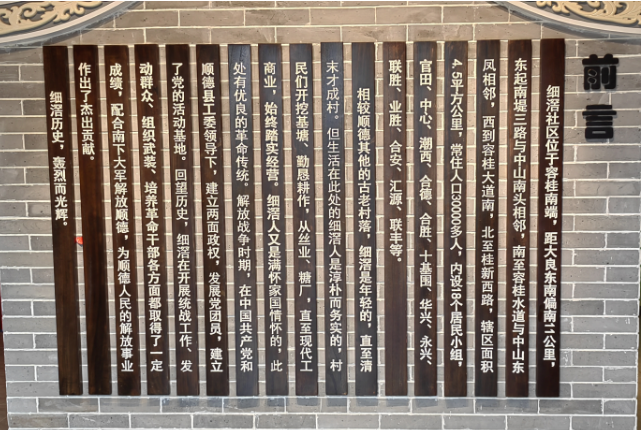 前言
细滘社区位于容桂南端，距大良东南偏南11公里，
东起南堤三路与中山南头相邻，南至容桂水道与中山东
凤相邻，西到容桂大道南，北至桂新西路，辖区面积
4.5平方公里，常住人口30000多人，内设18个居民小组，
官田、中心、潮西、合德、合胜、十基围、华兴、永兴、
联胜、业胜、合安、汇源、联丰等。
相较顺德其他的古老村落，细滘是年轻的，直至清
末才成村。但生活在此处的细滘人是淳朴而务实的，村
民们开挖基塘、勤恳耕作，从丝业、糖厂，直至现代工
商业，始终踏实经营。细滘人又是满怀家国情怀的，此
处有优良的革命传统。解放战争时期，在中国共产党和
顺德县工委领导下，建立两面政权，发展党团员，建立
了党的活动基地。回望历史，细滘在开展统战工作、发
动群众、组织武装、培养革命干部各方面都取得了一定
成绩，配合南下大军解放顺德，为顺德人民的解放事业
作出了杰出贡献。
细滘历史，轰烈而光辉。